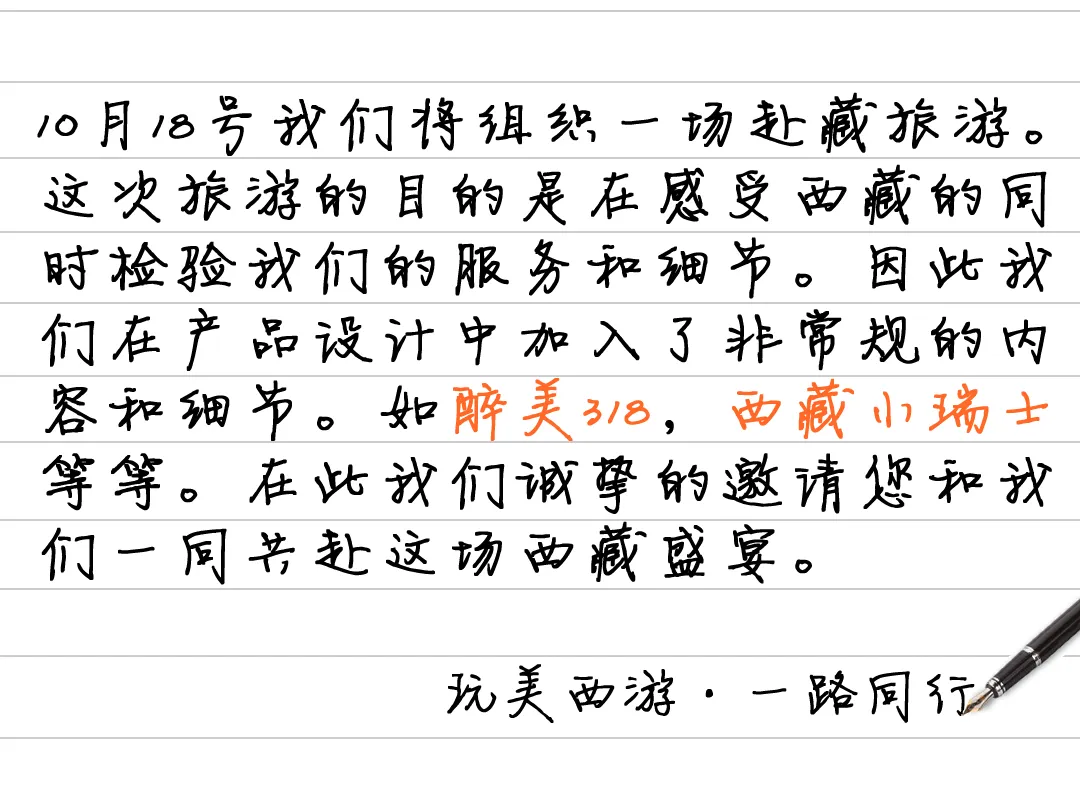 10月18号我们将组织一场赴藏旅游。
这次旅游的目的是在感受西藏的同
时检验我们的服务和细节。因此我
们在产品设计中加入了非常规的内
容和细节。如醉美318，西藏小瑞士
等等。在此我们诚挚的邀请您和我
们一同共赴这场西藏盛宴。
玩美西游·一路同行